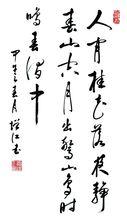 人閒桂花落夜靜
春山空月出驚山鳥時
鳴春澗中